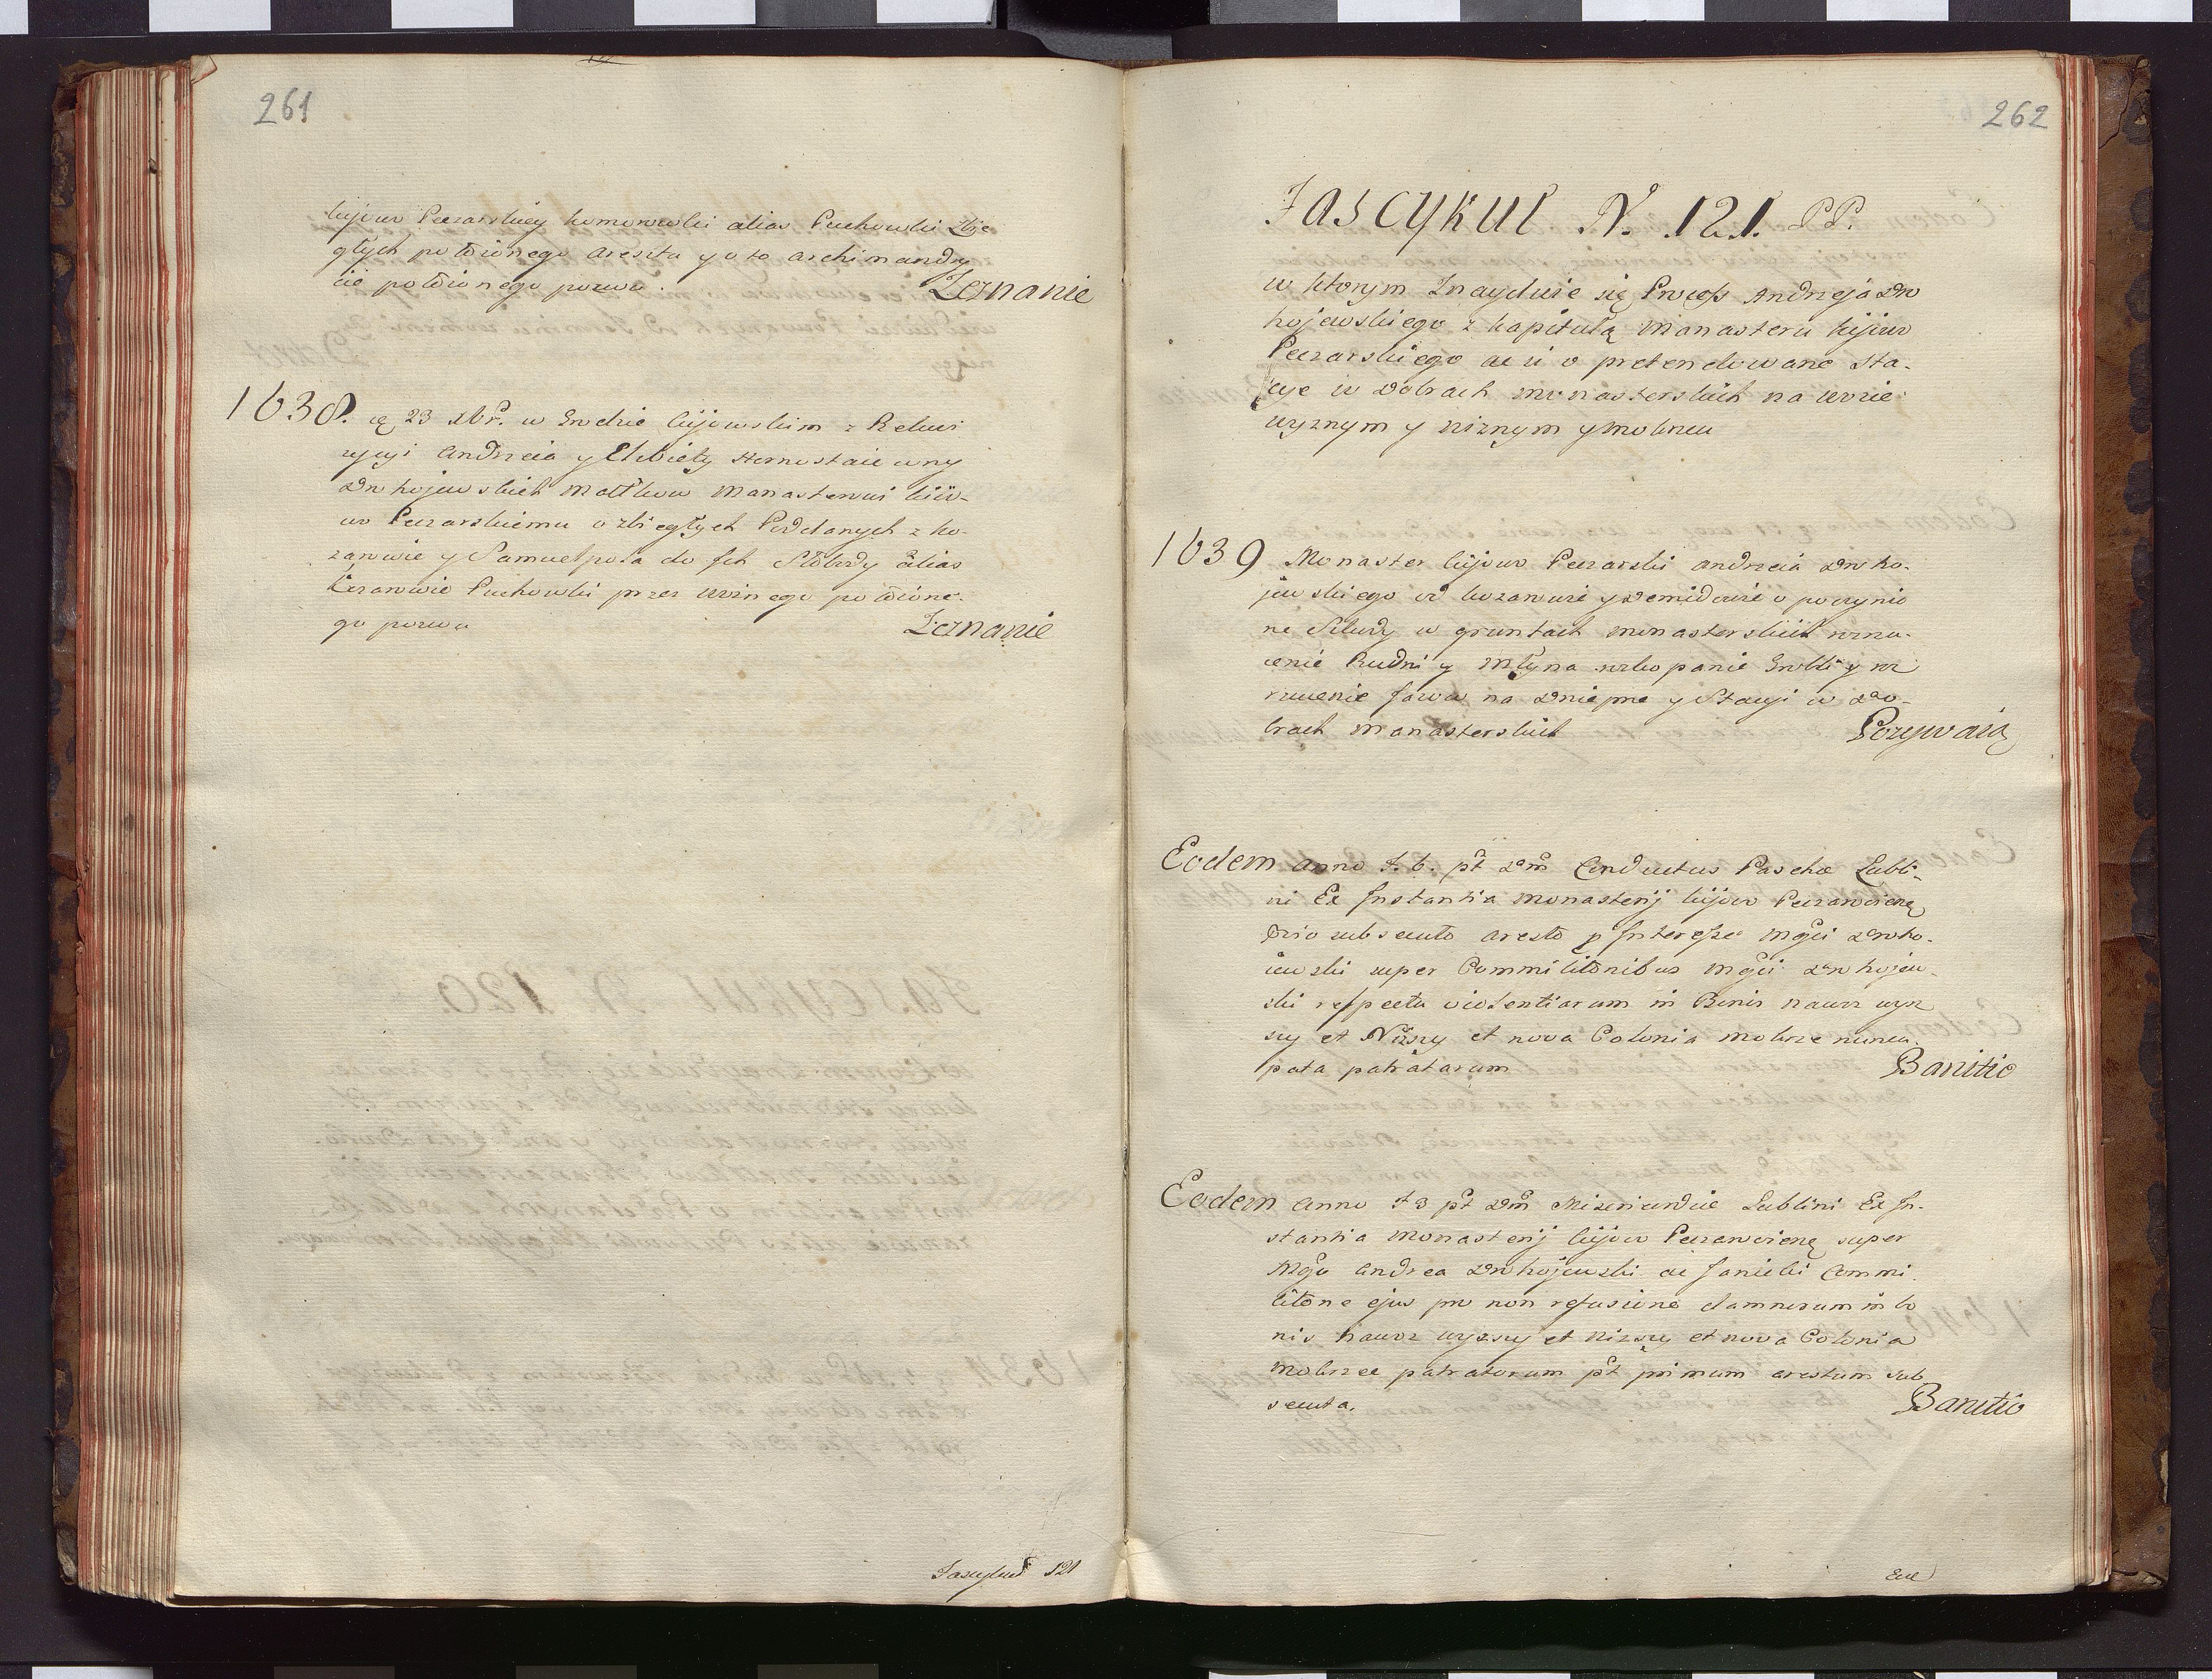 261
kijow Peczarskiey komorowki alias Puchowki Zbie
głych położonego aresztu y o to archimandry
cie położonego pozwu.
Zeznanie
1638. 23 xbr. w Grodzie kijowskim z Relacj
Andrzeia y Elżbiety Hornostaiewny
Drohojewskich Małżow Manasterowi kiio-
wo Peczarskiemu o zbiegłych Poddanych z ko-
zarowic y Samuelpola do ich Słobody alias
Puchowki przez woznego położone-
go pozwu
Zeznanie
Fascykuł 121
262
Fascykuł N. 121. PP.
w ktorym Znayduie się Process Andrzeja Dro
hojewskiego z kapitułą Manasteru kijow
Peczarskiego o pretendowane sta-
cye w Dobrach monasterskich
wyznym y niznym y mokrcu
1639 Monaster kijow Peczarski Andrzeia Droho-
jewskiego od kozarowic y Demidowic o poczynio
ne szkody w gruntach monasterskich
Rudni y Młyna wzkopanie Grobli y
na Dnieprze y Stacyi w Do-
brach Manasterskich
Pozywaią
Eodem Anno f. 6. pt Dom Conductus Paschæ Lubli-
ni Ex Instantia Monasterij kijow Peczarcien
subsecuto aresto p Interesse Mgci Droho-
iewski super Commilitonibus Mgci Drohojew-
ski respectu violentiarum in Bonis nawoz wyz
szy et Niższy et nova Colonia Mokrze nuncu
pata patratarum
Banitio
Eodem Anno f 3 pt Dom Misericordie Lublini Ex In-
stantia Monasterij kijow Peczarcien super
Mgco Andrea Drohojewski ac Janicki Commi
litone ejus pro non refusione damnorum in bo
nis nawoz wyzszy et nizszy et nova Colonia
Mokrzec patratorum pt primum arestum sub
secuta.
Banitio